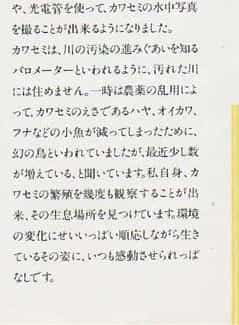 や、光電管を使って、カワセミの水中写真
を撮ることが出来るようになりました。
カワセミは、川の汚染の進みぐあいを知る
バロメーターといわれるように、汚れた川
には住めません。一時は農薬の乱用によ
って、カワセミのえさであるハヤ、オイカワ、
フナなどの小魚が減ってしまったために、
幻の鳥といわれていましたが、最近少し数
が増えている、と聞いています。私自身、カ
ワセミの繁殖を幾度も観察することが出
来、その生息場所を見つけています。環境
の変化にせいいっぱい順応しながら生き
ているその姿に、いつも感動させられっぱ
なしです。